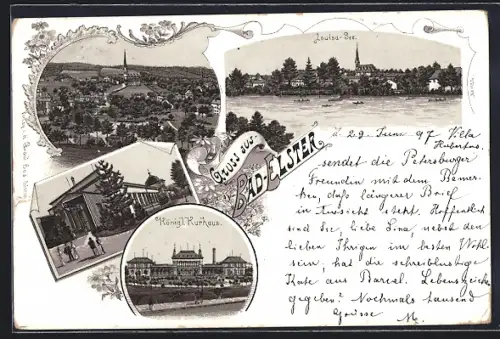 Louisa-See.
Gruss aus
BAD-ELSTER
Königl. Kurhaus.
d 29 Juni 97 Villa
Hubertus.
sendet die Petersburger
Freunden mit dem Bemer-
ken, dass längerer Brief
in Aussicht steht. Hoffentlich
sind Sie, liebe Lina, nebst den
lieben Ihrigen im besten Wohl-
sein, hat die schreiblustige
Kate aus Barcel. Lebenszeichen
gegeben? Nochmals tausend
Grüsse M.